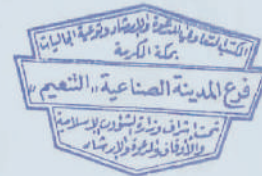 المكتب التعاوني للدعوة والإرشاد وتوعية الجاليات
بمكة المكرمة
فرع المدينة الصناعية ،، التنعيم ،،
تحت إشراف وزارة الشؤون الإسلامية
والأوقاف والدعوة والإرشاد